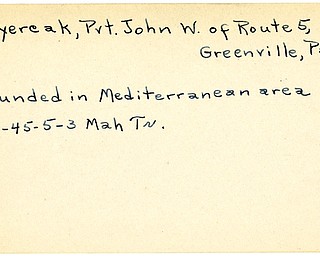 yercak, Pvt. John W. of Route 5,
Greenville, P
unded in Mediterranean area
-45-5-3 Mah Tv.